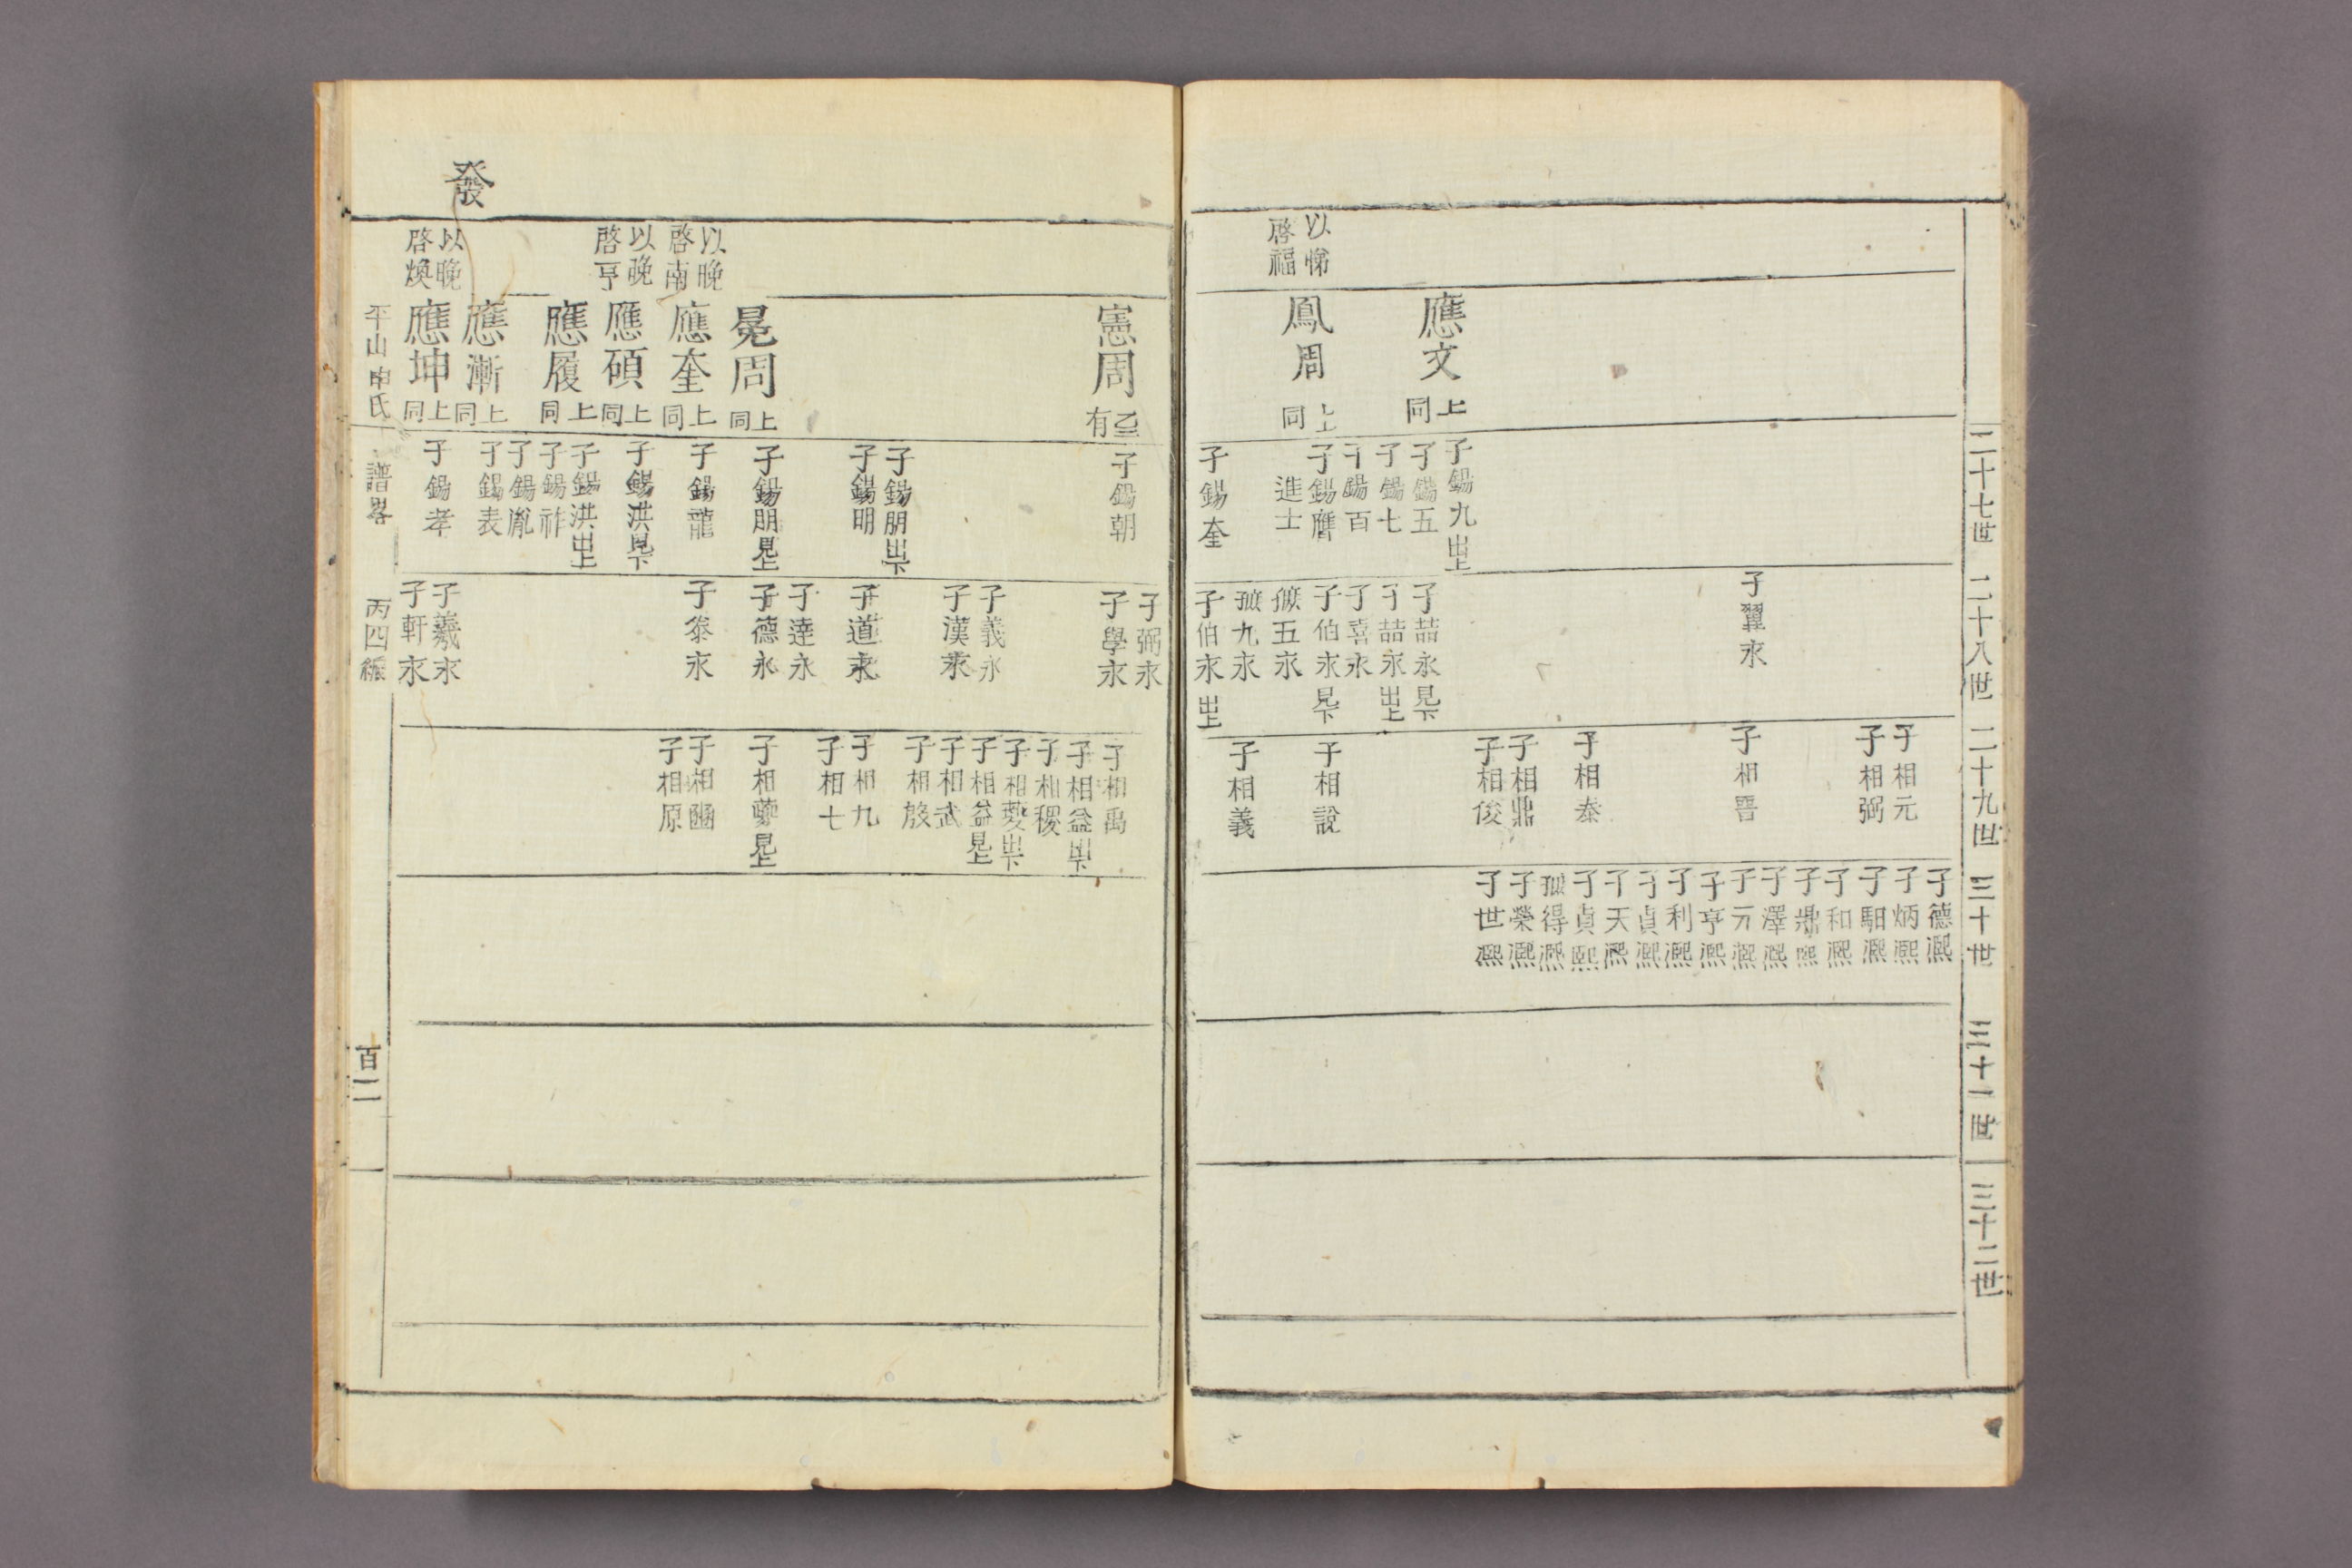 二十七世
二十八世
二十九世
三十世
三十一世
三十二世
以悌
啓福
應文
上同
鳳周
上同
子錫九出上
子錫五
子錫七
子錫百
子錫膺
進士
子錫奎
子翼永
子喆永見下
子喆永出上
子喜永
子伯永見下
五永
九永
子伯永出上
子相元
子相弼
子相晋
子相泰
子相鼎
子相俊
子相說
子相義
子德熈
子炳熈
子馹熈
子和熈
子鼎熈
子澤熈
子元熈
子亨熈
子利熈
子貞熈
子天熈
子貞熈
得熈
子榮熈
子世熈
發
以晚
啓南
以晚
啓亨
以晚
啓煥
憲周
有
晃周
上同
應奎
上同
應碩
上同
應履
上同
應漸
上同
應坤
上同
子錫朝
子錫朋出下
子錫明
子錫朋見上
子錫龍
子錫洪見下
子錫洪出上
子錫祚
子錫胤
子錫表
子錫孝
子弼永
子學永
子義永
子漢永
子道永
子達永
子德永
子泰永
子羲永
子軒永
子相禹
子相益出下
子相稷
子相夔出下
子相益見上
子相武
子相殷
子相九
子相七
子相夔見上
子相豳
子相原
平山申氏
譜畧
丙四編
百二